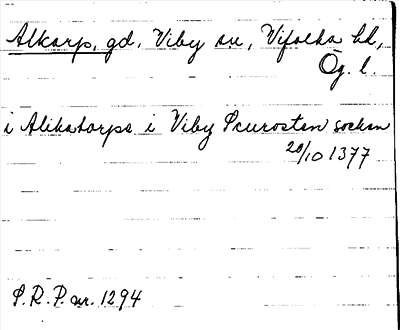 Alkarp, gd, Viby sn, Vifolka hd,
Ög. l.
i Alikatorpa i Viby Scurostan sockan
20/10 1377
S. R. P. nr. 1294